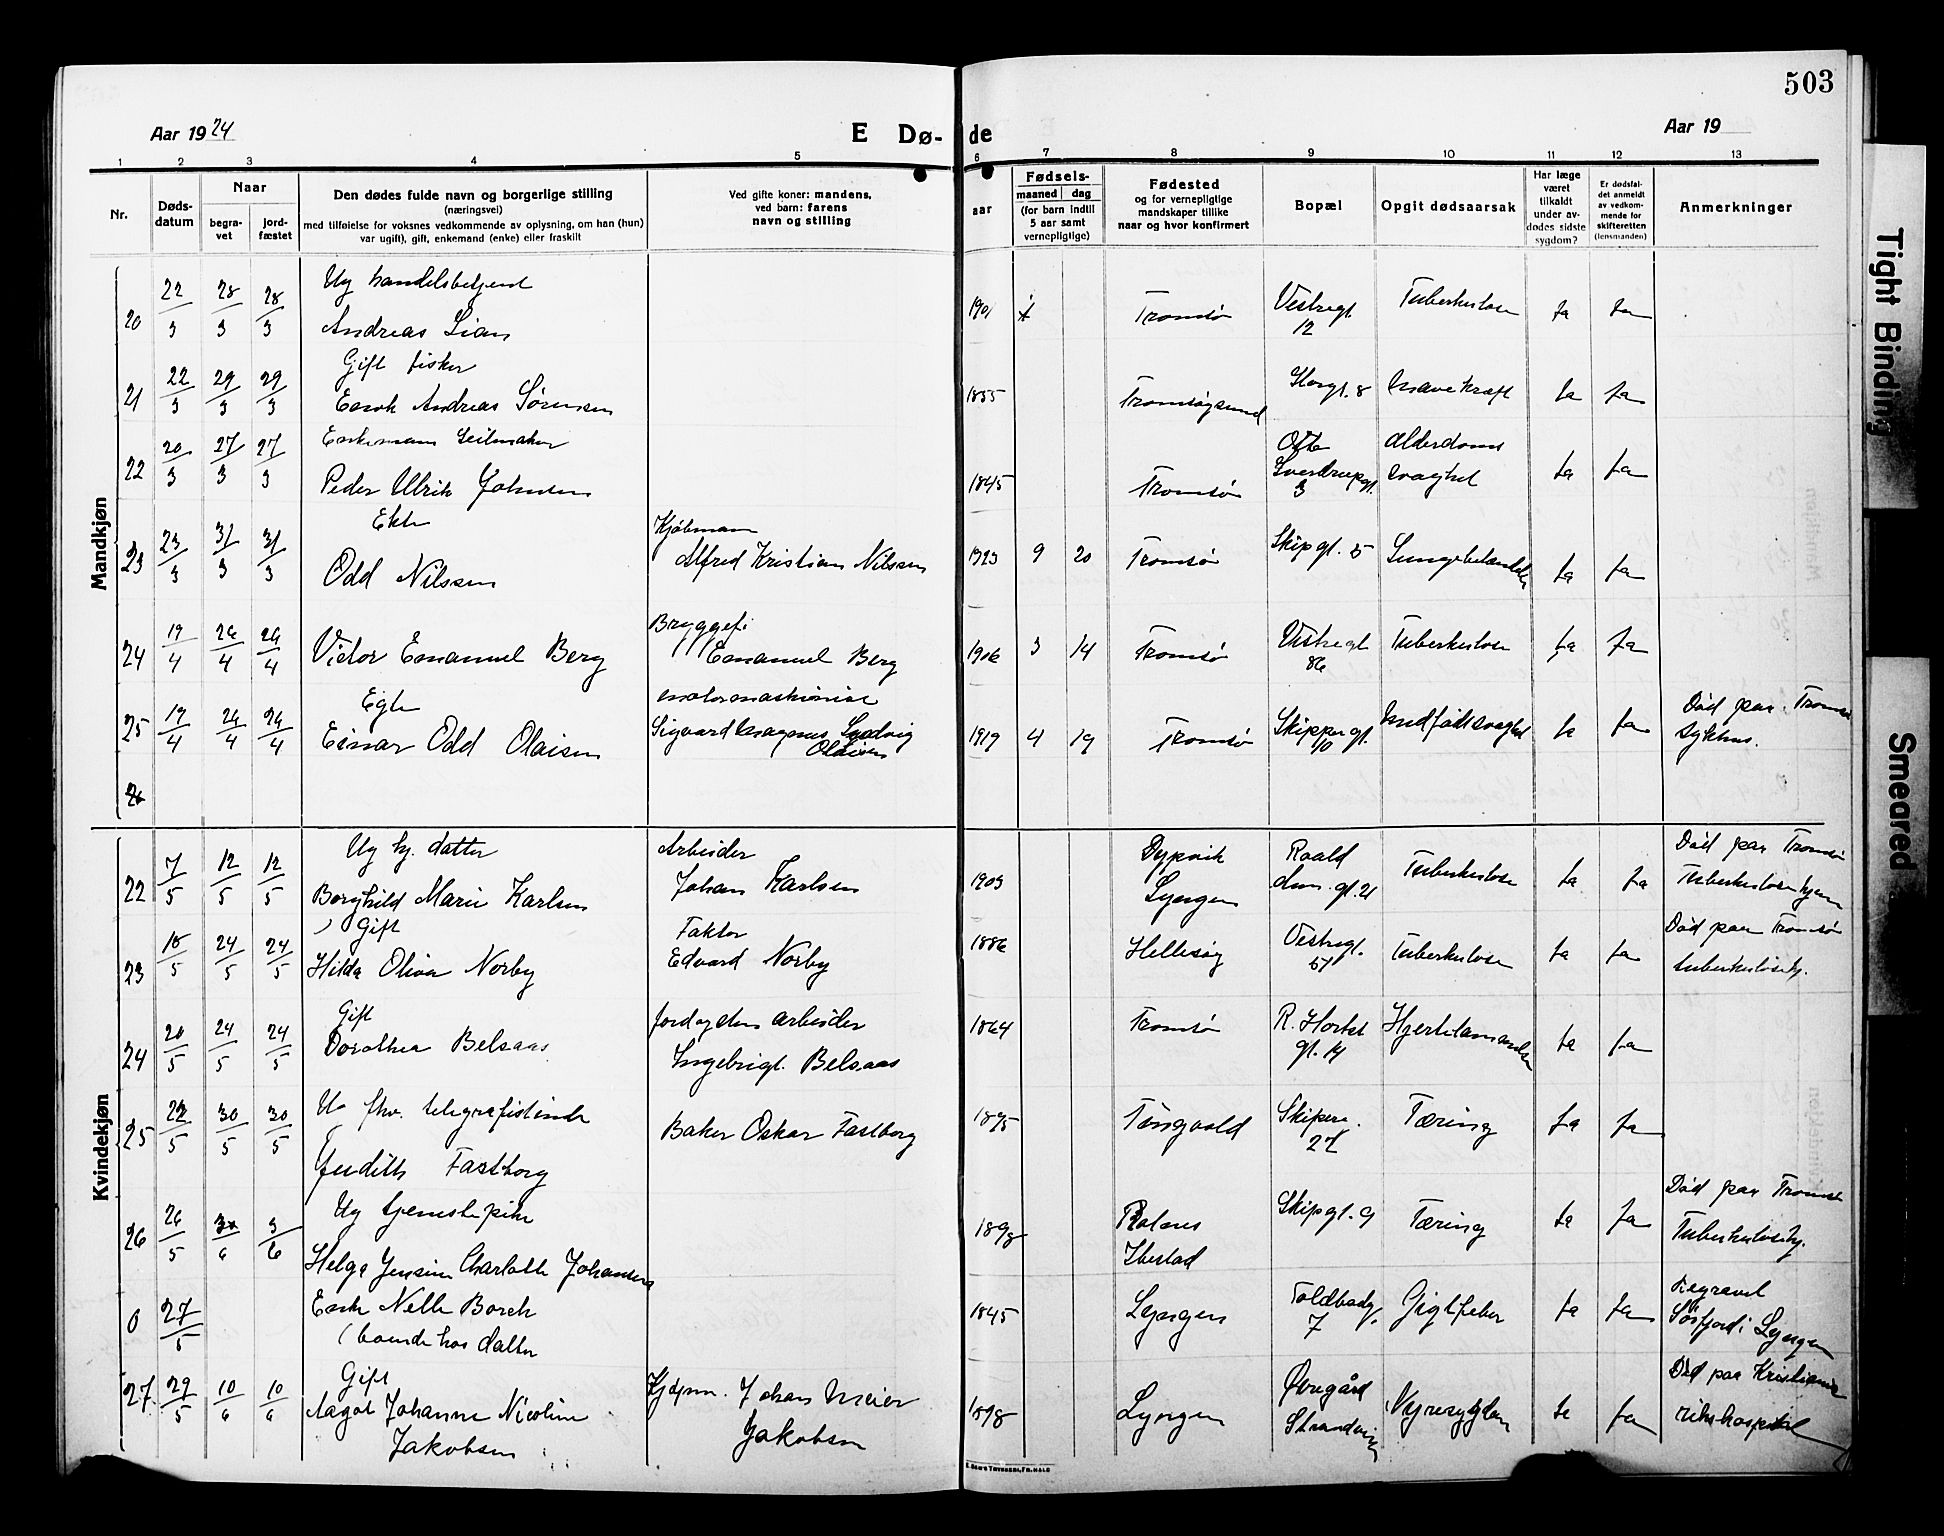 503
Aar 1924
E Dø-
de
Aar 19
1 2 3 4 5 6 7 8 9 10 11 12 13
Nr.
Døds-
datum
Naar
begra-
vet
jord-
fæstet
Den dødes fulde navn og borgerlige stilling
(næringsvei)
med tilføielse for voksnes vedkommende av oplysning, om han (hun)
var ugift), gift, enkemand (enke) eller fraskilt
Ved gifte koner: mandens,
ved barn: farens
navn og stilling
aar
Fødsels-
maaned dag
(for barn indtil
5 aar samt
vernepligtige)
Fødested
og for vernepligtige
mandskaper tillike
naar og hvor konfirmert
Bopæl
Opgit dødsaarsak
Har læge
været
tilkaldt
under av-
dødes sidste
sygdom?
Er dødsfal-
det anmeldt
av vedkom-
mende for
skifteretten
(lensmanden)
Anmerkninger
Mandkjøn
20 22/3 28/3 28/3 Ug handelsbetjent
Andreas Lian
1901 Tromsø Vestregt. 12 Tuberkulose Ja Ja
21 22/3 29/3 29/3 Gift fisker
Enok Andreas Sørensen
1855 Tromsøysund Mavekræft Ja Ja
22 20/3 27/3 27/3 Enkemann Seilmaker
Peder Ulrik Johnsen
1845 Tromsø Otto
Sverdrupgt.
3 Alderdoms
svaghet Ja Ja
23 23/3 31/3 31/3 Ekte
Odd Nilsen
Kjøbmann
Alfred Kristian Nilsen
1923 9 20 Tromsø Skipgt. 5 Lungebetændelse Ja Ja
24 19/4 24/4 24/4 Victor Emanuel Berg
Bryggefi
Emanuel Berg
1906 3 14 Tromsø Vestregt
86 Tuberkulose Ja Ja
25 19/4 24/4 24/4 Egte
Einar Odd Olaisen
motormaskinist
Sigvard Magnus Ludvig
Olaisen
1919 4 19 Tromsø Skippergt.
10 Medfødt svaghet Ja Ja Død paa Tromsø
sykhus.
Kvindekjøn
22 7/5 12/5 12/5 Ug hj. datter
Borghild Marie Karlsen
Arbeider
Johan Karlsen
1903 Dypvik
Lyngen Roald
Am. gt. 21 Tuberkulose Ja Ja Død paa Tromsø
Tuberkulosehjem
23 18/5 24/5 24/5 Gift
Hilda Oliva Norby
Faktor
Edvard Norby
1886 Hellesøy Vestregt.
51 Tuberkulose Ja Ja Død paa Tromsø
tuberkulosehj.
24 20/5 24/5 24/5 Gift
Dorothea Belsaas
Jord og Sten arbeider
Ingebrigt Belsaas
1864 Tromsø R. Hortst
gt. 14 Hjertelammelse Ja Ja
25 22/5 30/5 30/5 U. fhv. telegrafistinde
Judith Fastborg
Baker Oskar Fastborg
1895 Tingvold Skiperg.
Tæring Ja Ja
26 26/5 3/6 3/6 Ug tjenestepike
Helga Jensine Charlotte Johansen
1898 Rolnes
Ibestad Skipgt. 9 Tæring Ja Ja Død paa Tromsø
Tuberkulosehj.
0 27/5 Enke Nelle Borch
(boende hos datter
1845 Lyngen Toldbodg.
7 Gigtfeber Ja Ja Begravet
Sørfjord i Lyngen
27 29/5 10/6 10/6 Gift
Aagot Johanne Nicoline
Jakobsen
Kjøpm. Johan Meier
Jakobsen
1898 Lyngen Øvregård
Strandvei Nyresygdom Ja Ja Død paa Kristiania
rikshospital
Tight Binding
Smeared